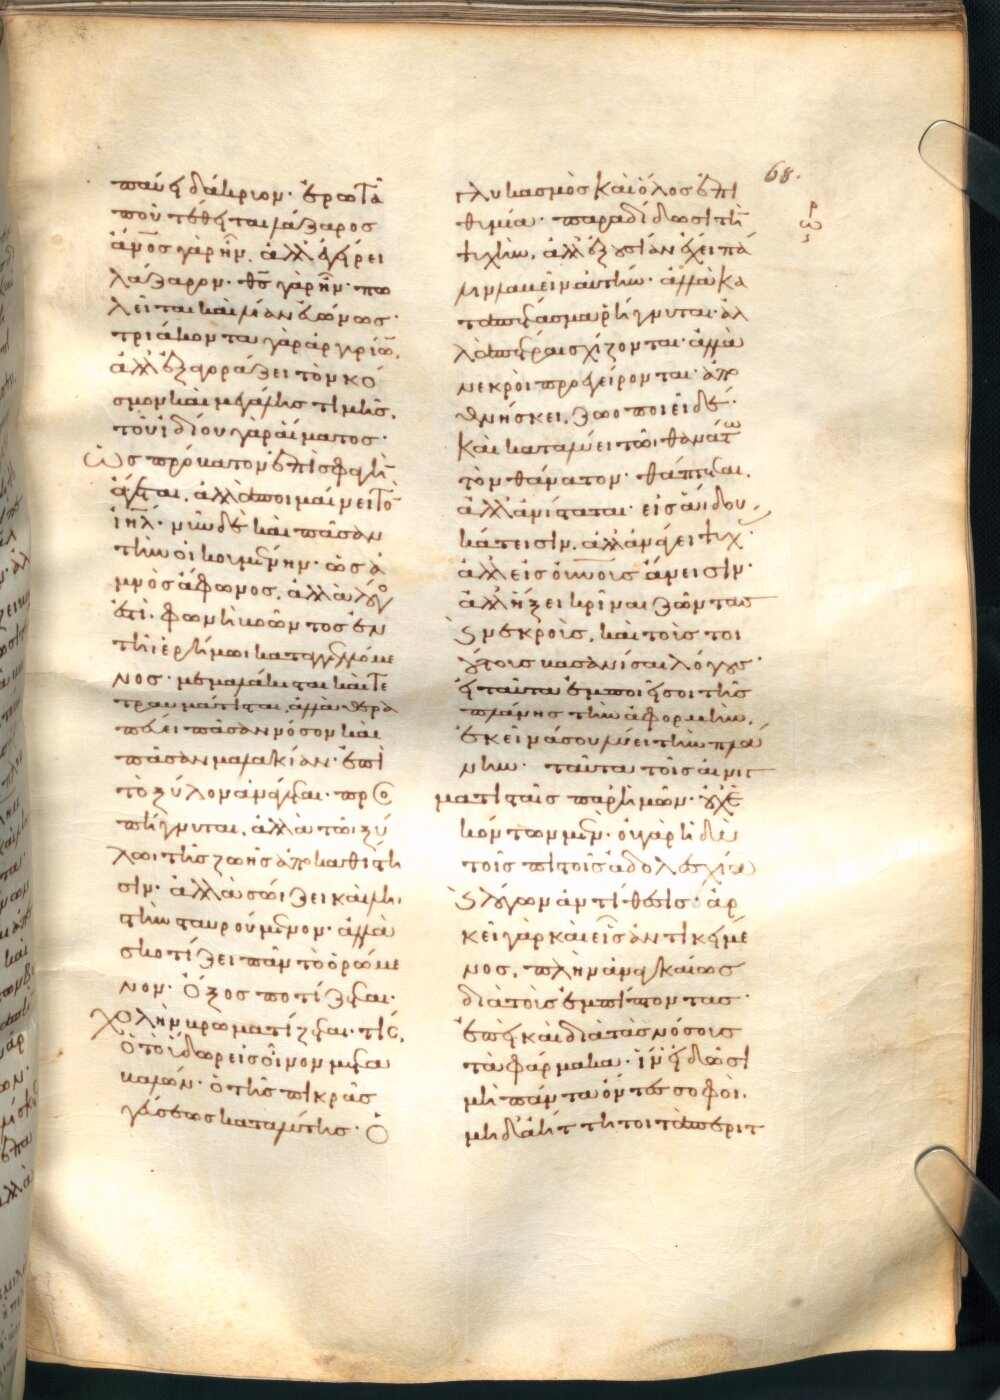 παύει δάκρυον· ἐρωτᾶ
ποῦ τέθειται λάζαρος
ἄνο̅ς γὰρ ἦν. ἀλλ' ἐγείρει
λάζαρον· θς̅ γὰρ ἦν· πω
λεῖται καὶ λίαν εὐώνως·
τριάκοντα γὰρ ἀργυρίω̅.
ἀλλ' ἐξαγοράζει τὸν κό
σμον καὶ μεγάλης τιμῆς.
τοῦ ἰδίου γὰρ αἵματος·
Ὡς πρόβατον ἐπὶ σφαγὴ̅
ἄγεται. ἀλλὰ ποιμαίνει τὸ̅
ἰη̅λ· νῦν δὲ καὶ πᾶσαν
τὴν οἰκουμένην· ὡς ἀ
μνὸς ἄφωνος. ἀλλὰ λόγο
ἐστί· φωνῆι βοῶντος ἐν
τῆι ἐρήμωι καταγγελλόμε
νος· μεμαλάκισται καὶ τε
τραυμάτισται, ἀλλὰ θερα
πεύει πᾶσαν νόσον καὶ
πᾶσαν μαλακίαν· ἐπὶ
τὸ ξύλον ἀνάγεται· προσ
πήγνυται, ἀλλὰ τῶι ξύ
λωι τῆς ζωῆς ἀποκαθίστη
σιν· ἀλλὰ σώιζει καὶ λη
στὴν σταυρούμενον· ἀλλὰ
σκοτίζει πᾶν τὸ ὁρώμε
νον· Ὄξος ποτίζεται·
χολὴν βρωματίζεται· τίς,
ὁ τὸ ὕδωρ εἰς οἶνον μετα
βαλών· ὁ τῆς πικρᾶς
γεύσεως καταλύτης· Ὁ
γλυκασμὸς καὶ ὅλος ἐπι
θυμία· παραδίδωσι τὴ̅
ψυχὴν, ἀλλ' ἐξουσίαν ἔχει πά
λιν λαβεῖν αὐτήν· ἀλλὰ κα
ταπέτασμα ῥήγνυται· ἀλ
λὰ πέτραι σχίζονται· ἀλλὰ
νεκροὶ προεγείρονται· ἀπο
θνήσκει, ζωοποιεῖ δέ·
καὶ καταλύει τῶι θανάτω
τὸν θάνατον· θάπτεται.
ἀλλ' ἀνίσταται· εἰς ἅιδου
κάτεισιν. ἀλλ' ἀνάγει ψυχάς·
ἀλλ' εἰς οὐνοὺς ἄνεισιν·
ἀλλ' ἥξει κρῖναι ζῶντας
ϗ νεκροὺς, καὶ τοὺς τοι
ούτους βασανίσαι λόγους·
εἰ ταῦτα ἐμποιεῖ σοι τῆς
πλάνης τὴν ἀφορμὴν.
ἐκεῖνά σου λύει τὴν πλά
νην· ταῦτα τοῖς αἰνιγ
ματισταῖς παρ' ἡμῶν· οὐχ ἑ
κόντων μέν· οὐ γὰρ ἡδὺ
τοῖς πιστοῖς ἀδολεσχία
ϗ λόγων ἀντίθεσις· ἀρ
κεῖ γὰρ καὶ εἷς ἀντικείμε
νος, πλὴν ἀναγκαίως
διὰ τοὺς ἐμπίπτοντας·
ἐπεὶ καὶ διὰ τὰς νόσους
τὰ φάρμακα· ἵν' εἰδῶσι
μὴ πάντα ὄντες σοφοί.
μηδὲ ἀήττητοι τὰ περιτ
68.